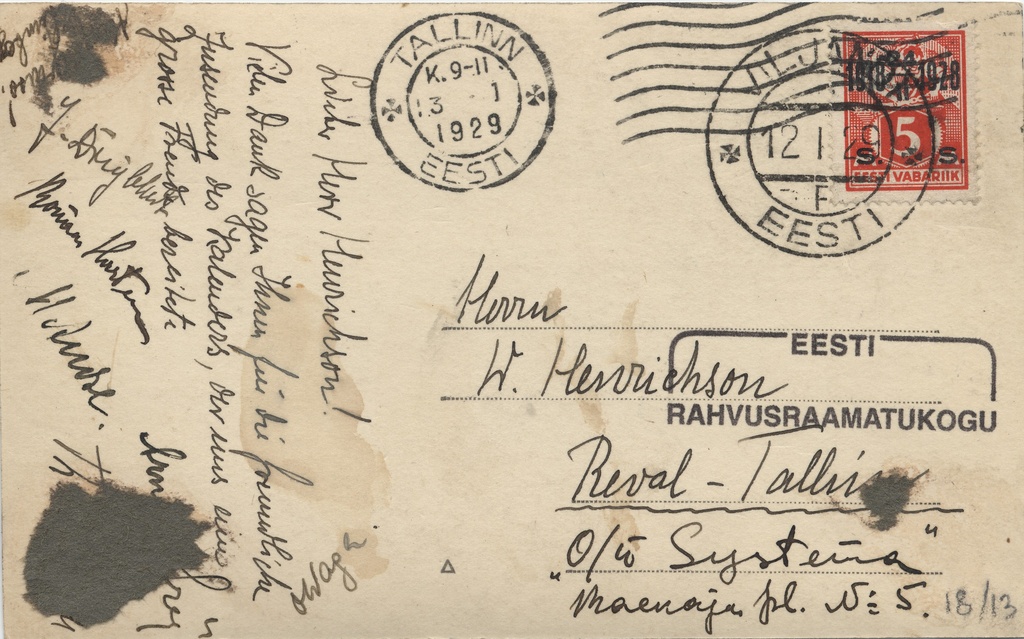 TALLINN
K. 9-11
13 1
1929
EESTI
12 I 29
EESTI
1918 24/II 1928
5
S. S.
EESTI VABARIIK
Lieber Herr Henrichson!
Vielen Dank sagen Ihnen für die freundliche
Zusendung des Kalenders, der uns eine
grosse Freude bereitete
Herrn
W. Henrichson
EESTI
RAHVUSRAAMATUKOGU
Reval - Tallinn
O/ü Systema"
pl. № 5.
18/13